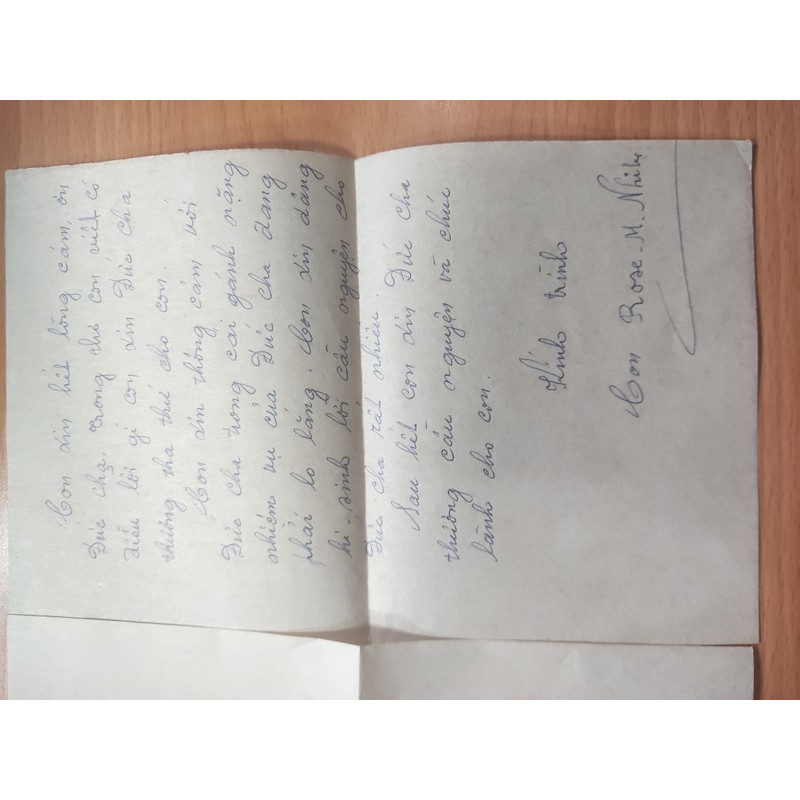 Con xin hết lòng cám, ơn
Đức cha. Trong thơ con viết có
điều lỗi gì con xin Đức Cha
thương tha thứ cho con.
Con xin thông cảm với
Đức cha trong cái gánh nặng
nhiệm vụ của Đức cha đang
phải lo lắng. Con xin dâng
hi-sinh lời cầu nguyện cho
Đức cha rất nhiều.
Sau hết con xin Đức cha
thương cầu nguyện và chúc
lành cho con.
Kính trình
Con Rose-M.